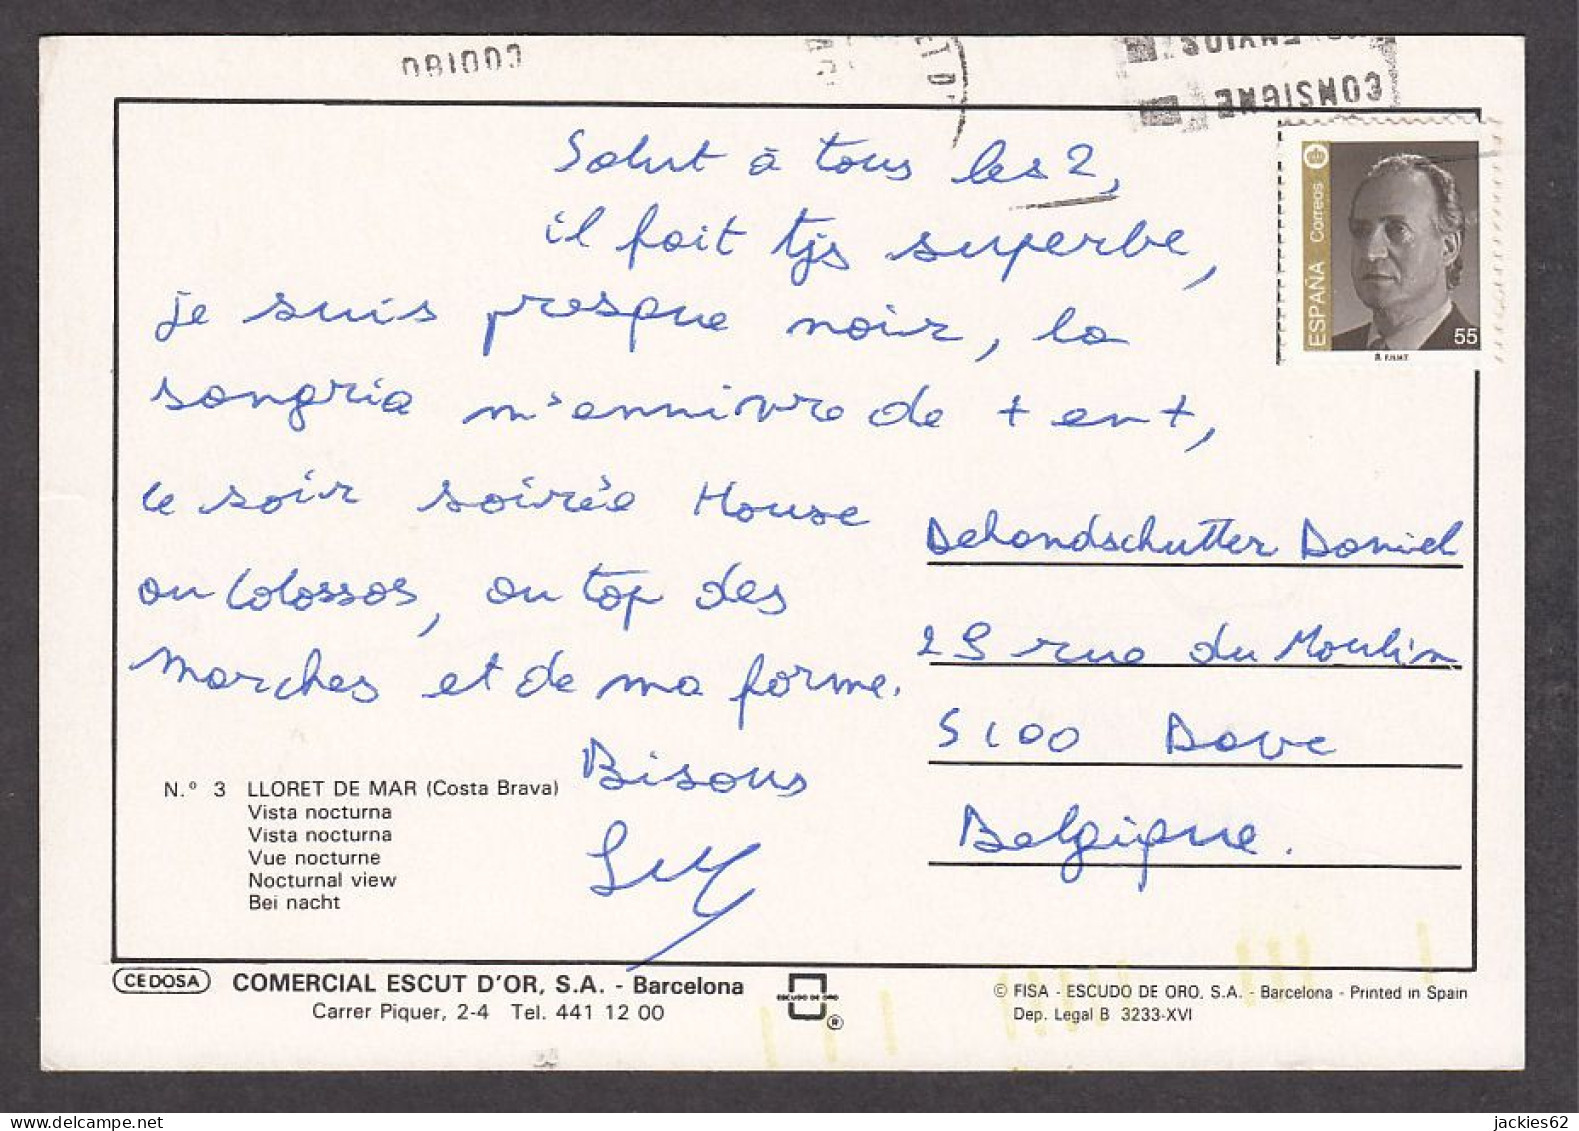 CONSIGNE
ENVIOS
Salut à tous les 2,
il fait tjs superbe,
je suis presque noir, la
sangria m'ennivre de + en +,
le soir soirée House
au Colossos, au top des
marches et de ma forme.
Bisous
Guy
ESPAÑA Correos
55
Dehandschutter Daniel
25 rue du Moulin
5100 Dave
Belgique.
N.º 3 LLORET DE MAR (Costa Brava)
Vista nocturna
Vista nocturna
Vue nocturne
Nocturnal view
Bei nacht
CEDOSA
COMERCIAL ESCUT D'OR, S.A. - Barcelona
Carrer Piquer, 2-4 Tel. 441 12 00
ESCUDO DE ORO
®
© FISA - ESCUDO DE ORO, S.A. - Barcelona - Printed in Spain
Dep. Legal B 3233-XVI
www.delcampe.net
jackies62